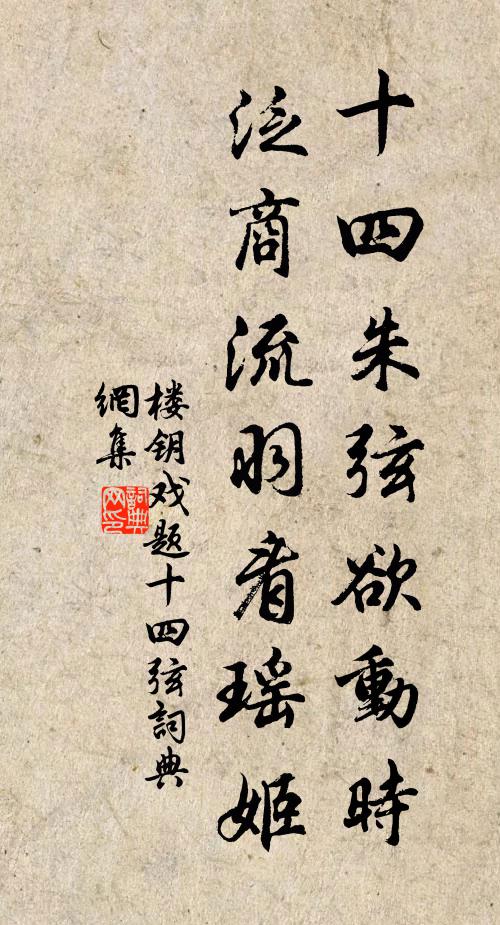 十四朱弦欲動時
泛商流羽看瑶姬
楼钥戏题十四弦詞典
網集
詞典
网印